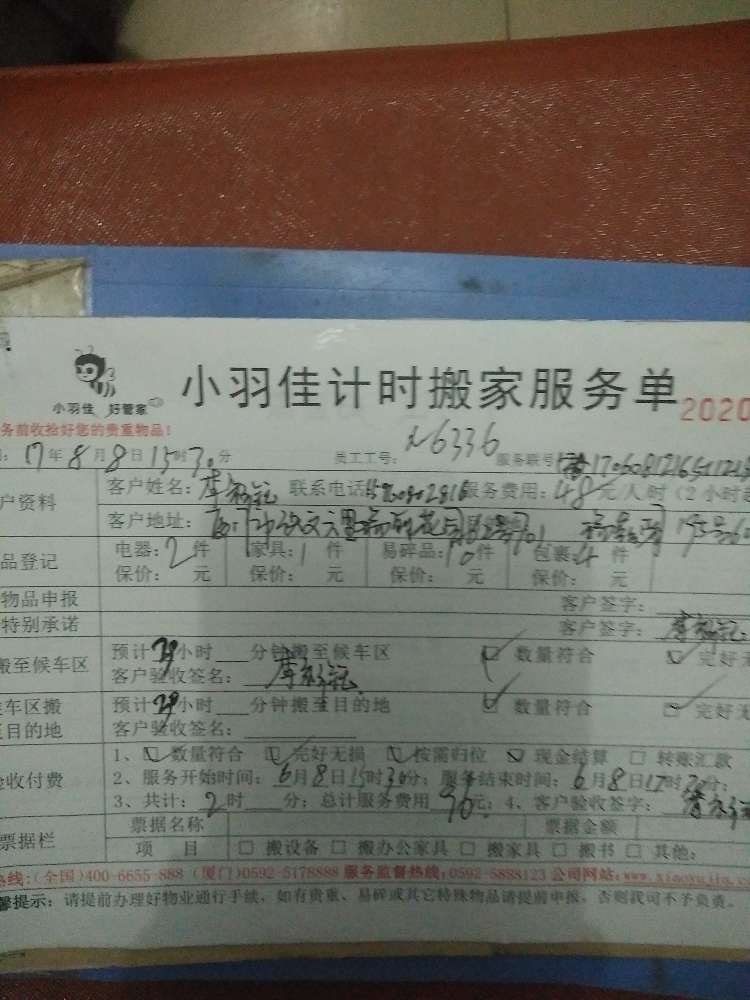 小羽佳 好管家
小羽佳计时搬家服务单 2020
务前收捡好您的贵重物品!
17年8月8日15时30分 员工工号: N6336 服务联号
户资料 客户姓名: 联系电话 服务费用: 48元/人时 (2小时
客户地址:
品登记 电器: 2件 家具: 1件 易碎品: 10件 包裹: 4件
保价: 元 保价: 元 保价: 元 保价: 元
物品申报 客户签字:
特别承诺 客户签字:
搬至候车区 预计 小时 分钟搬至候车区 数量符合 完好无
客户验收签名:
车区搬至目的地 预计 小时 分钟搬至目的地 数量符合 完好无
客户验收签名:
验收付费 1、数量符合 完好无损 按需归位 现金结算 转账汇款
2、服务开始时间: 6月8日15时30分; 服务结束时间: 6月8日17时
3、共计: 2时 分; 总计服务费用 96元; 4、客户验收签字:
票据栏 票据名称 票据金额
项 目 搬设备 搬办公家具 搬家具 搬书 其他:
热线:(全国)400-6655-888 (厦门)0592-5178888 服务监督热线:0592-5888123 公司网站:
馨提示: 请提前办理好物业通行手续, 如有贵重、易碎或其它特殊物品请提前申报, 否则我司不予负责。